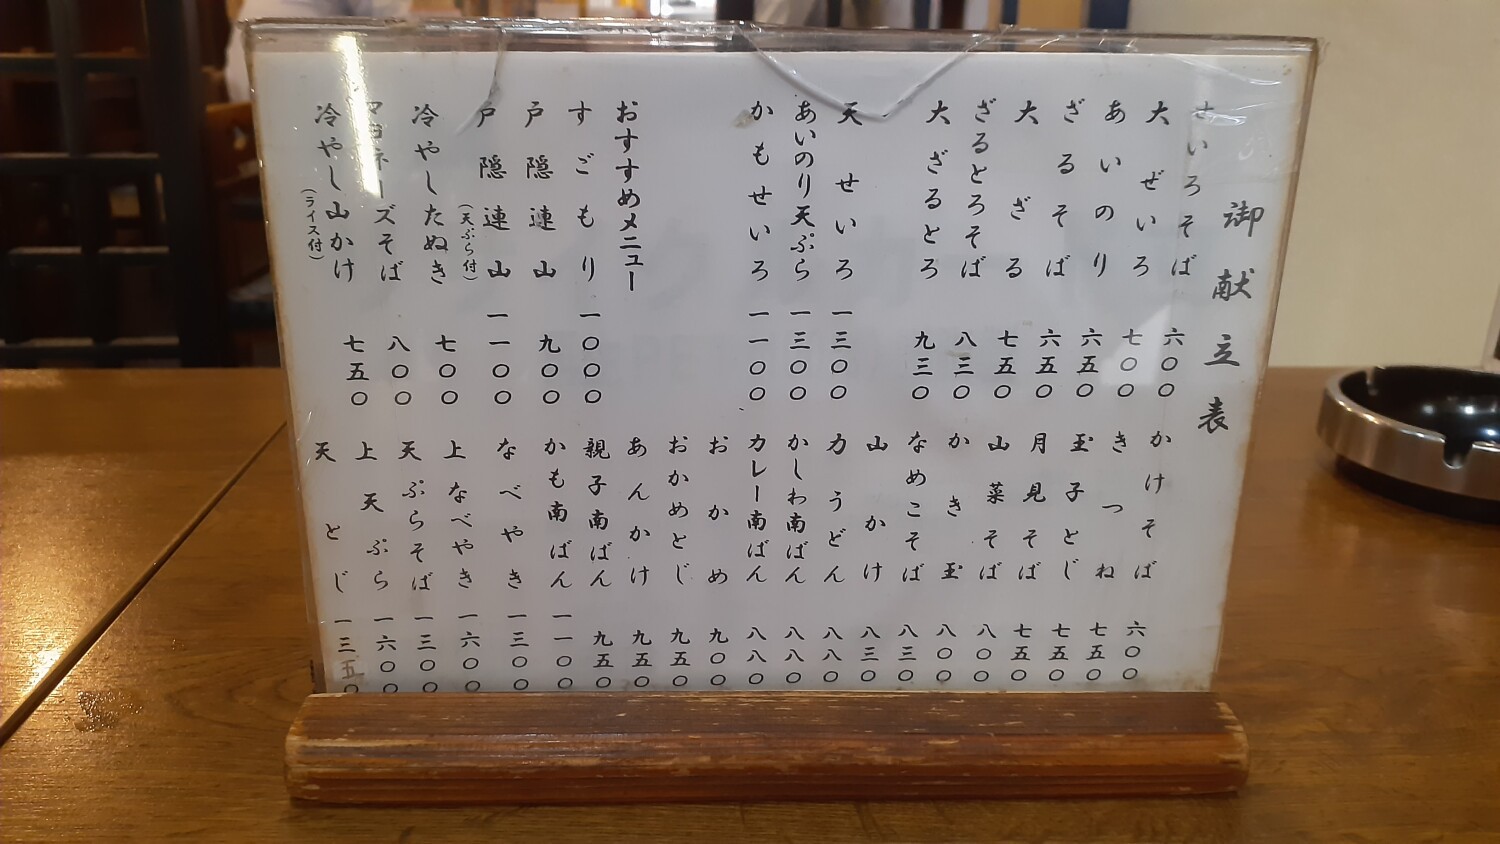 御献立表
せいろそば 六〇〇
大せいろ 七〇〇
あいのり 六五〇
ざるそば 六五〇
大ざる 七五〇
ざるとろそば 八三〇
大ざるとろ 九三〇
天せいろ 一三〇〇
あいのり天ぷら 一三〇〇
かもせいろ 一一〇〇
おすすめメニュー
すごもり 一〇〇〇
戸隠連山 九〇〇
戸隠連山 一一〇〇
(天ぷら付)
冷やしたぬき 七〇〇
マヨネーズそば 八〇〇
冷やし山かけ 七五〇
(ライス付)
かけそば 六〇〇
きつね 七五〇
玉子とじ 七五〇
月見そば 七五〇
山菜そば 八〇〇
かき玉 八〇〇
なめこそば 八三〇
山かけ 八三〇
力うどん 八八〇
かしわ南ばん 八八〇
カレー南ばん 八八〇
おかめ 九〇〇
おかめとじ 九五〇
あんかけ 九五〇
親子南ばん 九五〇
かも南ばん 一一〇〇
なべやき 一三〇〇
上なべやき 一六〇〇
天ぷらそば 一三〇〇
上天ぷら 一六〇〇
天とじ 一三五〇